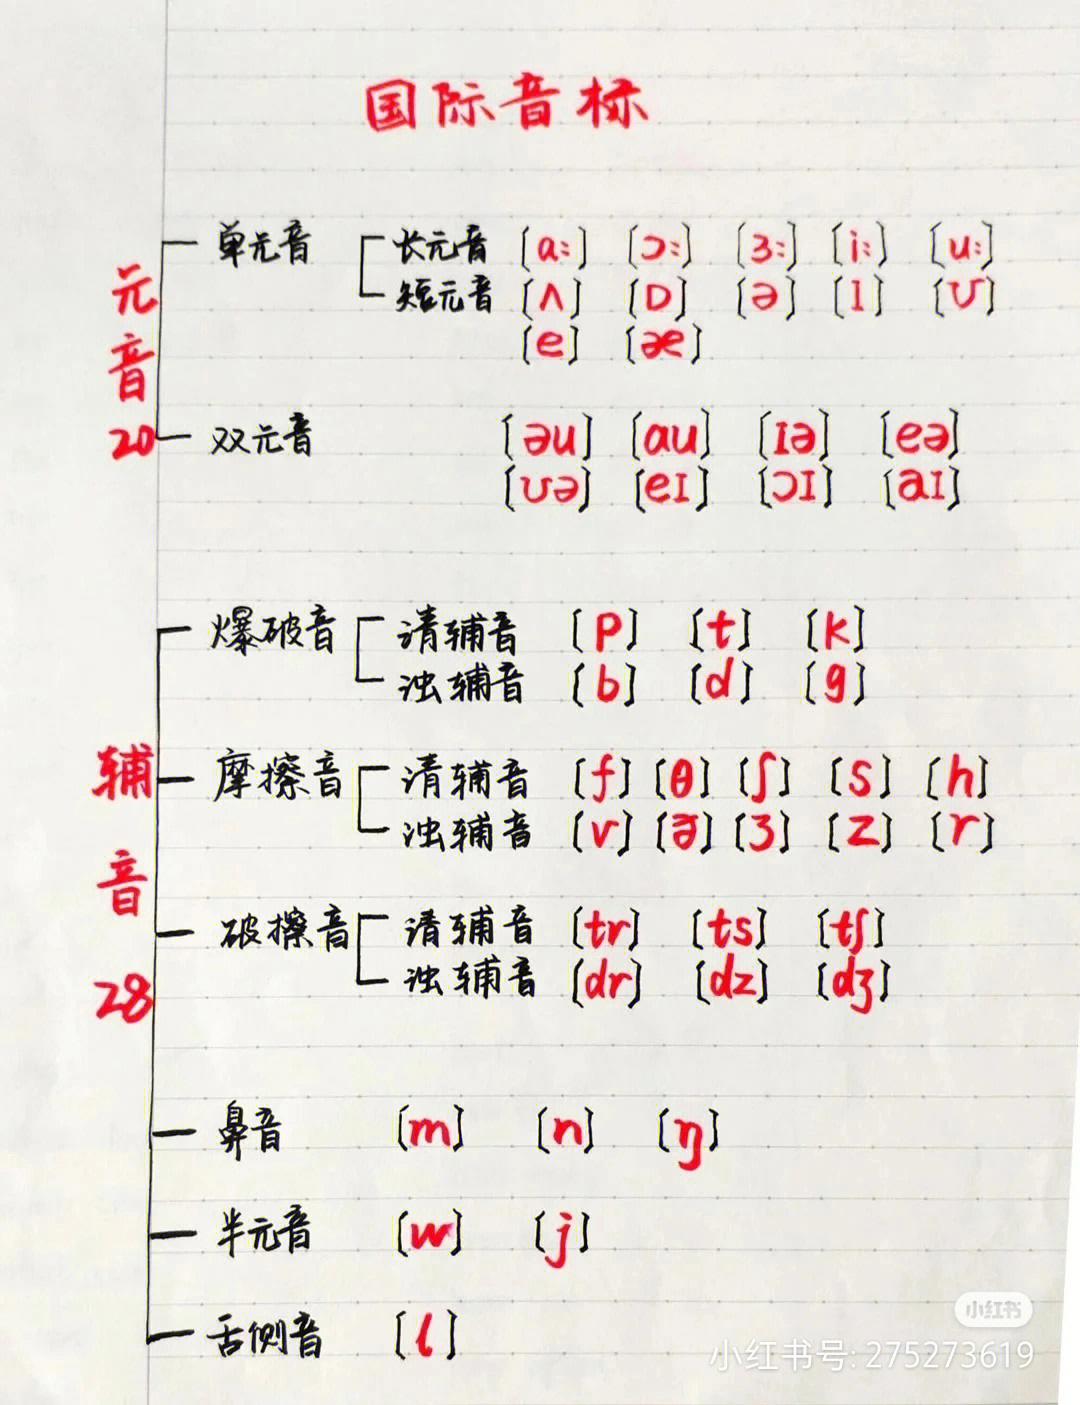 国际音标
元音 20
单元音 长元音 [a:] [ɔ:] [ɜ:] [i:] [u:]
短元音 [ʌ] [ɒ] [ə] [ɪ] [ʊ]
[e] [æ]
双元音 [əu] [au] [ɪə] [eə]
[ʊə] [eɪ] [ɔɪ] [aɪ]
辅音 28
爆破音 清辅音 [p] [t] [k]
浊辅音 [b] [d] [g]
摩擦音 清辅音 [f] [θ] [ʃ] [s] [h]
浊辅音 [v] [ð] [ʒ] [z] [r]
破擦音 清辅音 [tr] [ts] [tʃ]
浊辅音 [dr] [dz] [dʒ]
鼻音 [m] [n] [ŋ]
半元音 [w] [j]
舌侧音 [l]
小红书
小红书号: 275273619